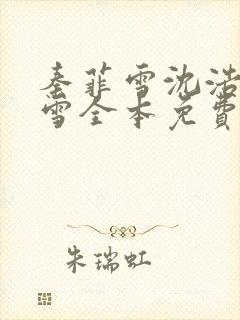 秦菲雪沈浩
雪全本免費
朱瑞虹